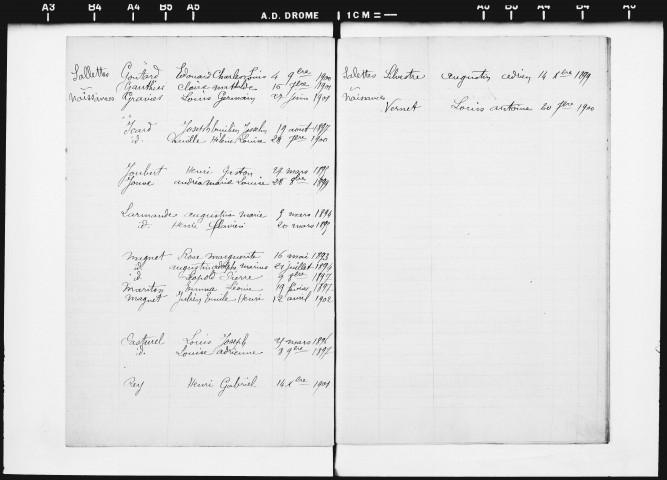 A3 B4 A4 B5 A5 A.D. DROME 1CM A5 B5 A4 B4 A3
Sallettes Goutard Edouard Charles Louis 4 9bre 1900
Gauthier Claire Mathilde 15 7bre 1901
Naissances Gravier Louis Germain 27 juin 1901
Icard Joseph Joseph 19 aout 1897
id. Lucille Hélène Louise 28 7bre 1900
Joubert Henri Gaston 29 mars 1895
Jouve andréa marie Louise 28 8bre 1899
Larmande augustin marie 9 mars 1894
id. Henri Flavien 20 mars 1897
Mignet Rose marguerite 16 mai 1893
id augustin marius 21 juillet 1894
id Léopold Pierre 9 8bre 1897
Mariton Emma Léonie 19 février 1897
Magnet Julien Emile Henri 12 avril 1902
Pasturel Louis Joseph 27 mars 1896
id. Louise adrienne 8 9bre 1897
Rey Henri Gabriel 14 Xbre 1901
Salettes Silvestre augustin 14 Xbre 1899
Naissances
Vernet Louis antoine 20 7bre 1900